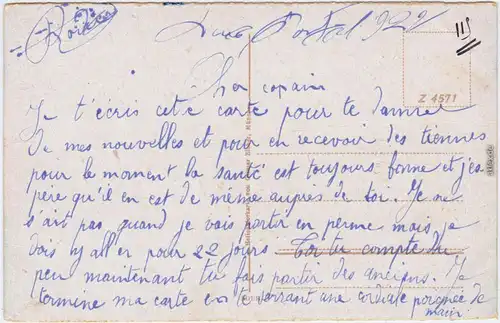 922
Cher copain
Je t'écris cette carte pour te donner
de mes nouvelles et pour en recevoir des tiennes
pour le moment la santé est toujours bonne et j'es
père qu'il en est de même auprès de toi. Je ne
s'ait pas quand je vais partir en perme mais je
dois y aller pour 22 jours. Toi tu compte du
peu maintenant tu fais partir des anciens. Je
termine ma carte en te serrant une cordiale poignée de
main.
Z 4571